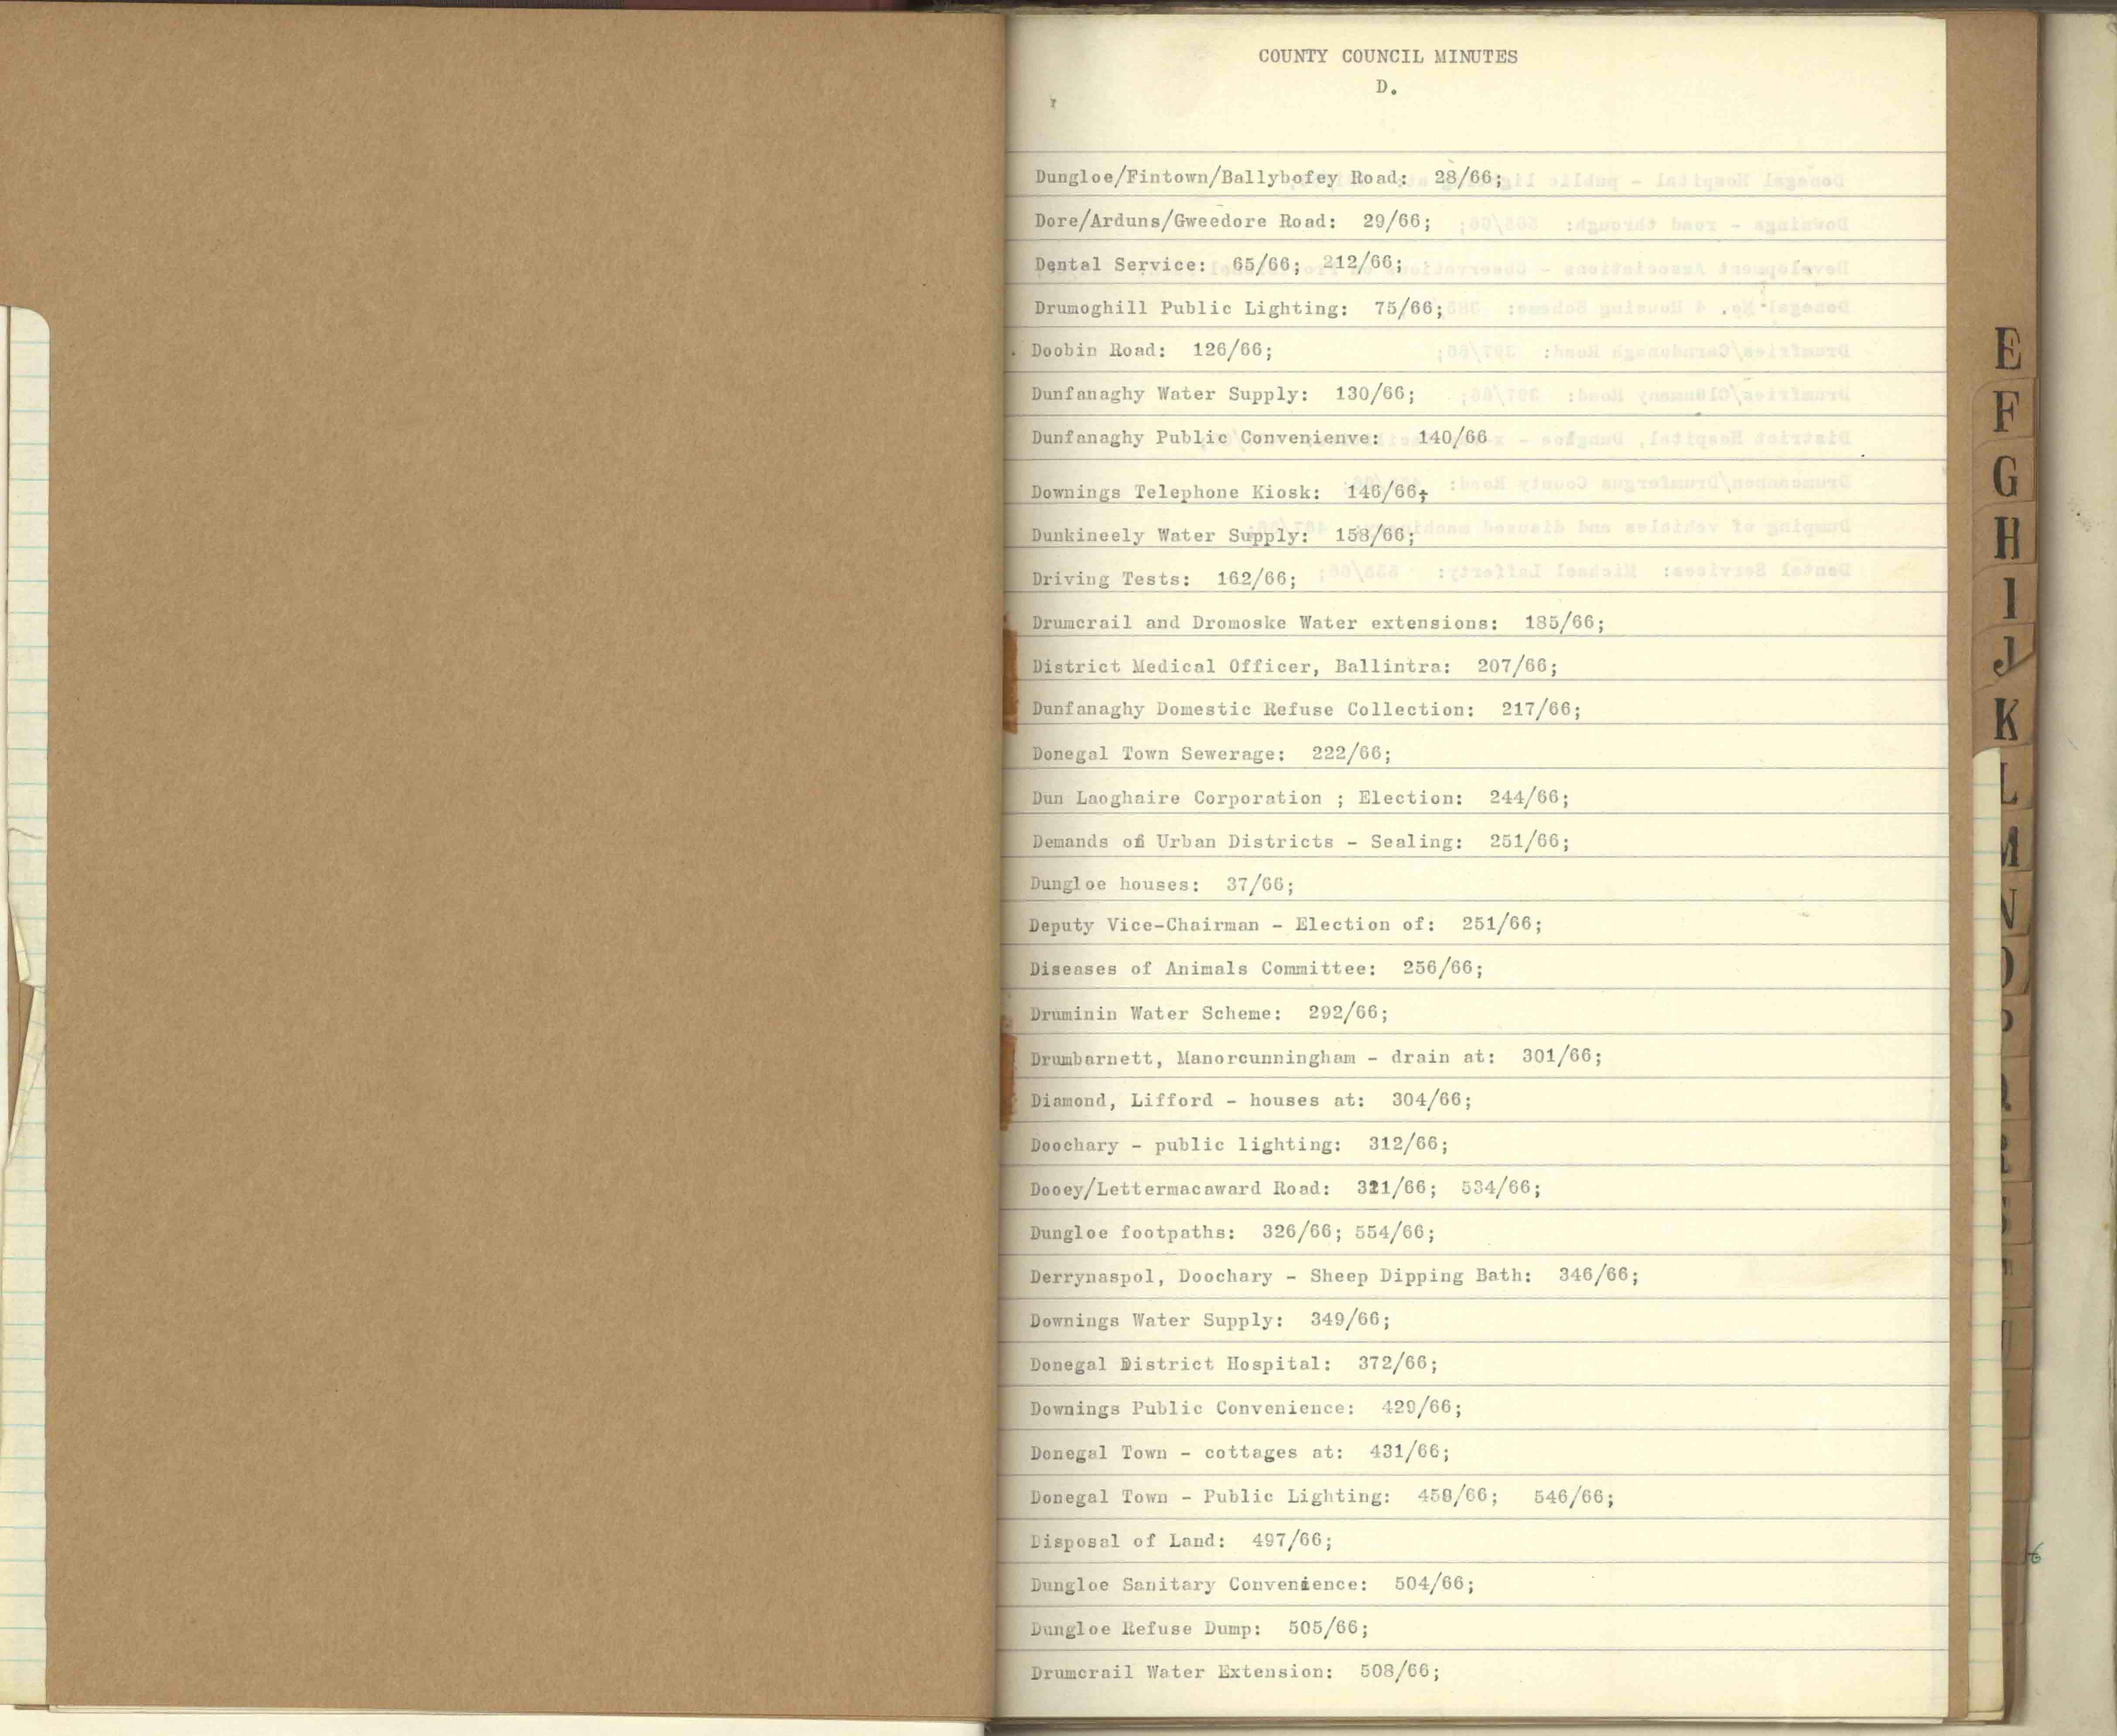 COUNTY COUNCIL MINUTES
D.
Dungloe/Fintown/Ballybofey Road: 28/66;
Dore/Arduns/Gweedore Road: 29/66;
Dental Service: 65/66; 212/66;
Drumoghill Public Lighting: 75/66;
Doobin Road: 126/66;
Dunfanaghy Water Supply: 130/66;
Dunfanaghy Public Convenienve: 140/66
Downings Telephone Kiosk: 146/66;
Dunkineely Water Supply: 158/66;
Driving Tests: 162/66;
Drumcrail and Dromoske Water extensions: 185/66;
District Medical Officer, Ballintra: 207/66;
Dunfanaghy Domestic Refuse Collection: 217/66;
Donegal Town Sewerage: 222/66;
Dun Laoghaire Corporation ; Election: 244/66;
Demands of Urban Districts - Sealing: 251/66;
Dungloe houses: 37/66;
Deputy Vice-Chairman - Election of: 251/66;
Diseases of Animals Committee: 256/66;
Druminin Water Scheme: 292/66;
Drumbarnett, Manorcunningham - drain at: 301/66;
Diamond, Lifford - houses at: 304/66;
Doochary - public lighting: 312/66;
Dooey/Lettermacaward Road: 321/66; 534/66;
Dungloe footpaths: 326/66; 554/66;
Derrynaspol, Doochary - Sheep Dipping Bath: 346/66;
Downings Water Supply: 349/66;
Donegal District Hospital: 372/66;
Downings Public Convenience: 429/66;
Donegal Town - cottages at: 431/66;
Donegal Town - Public Lighting: 458/66; 546/66;
Disposal of Land: 497/66;
Dungloe Sanitary Convenience: 504/66;
Dungloe Refuse Dump: 505/66;
Drumcrail Water Extension: 508/66;
E
F
G
H
I
J
K
L
M
N